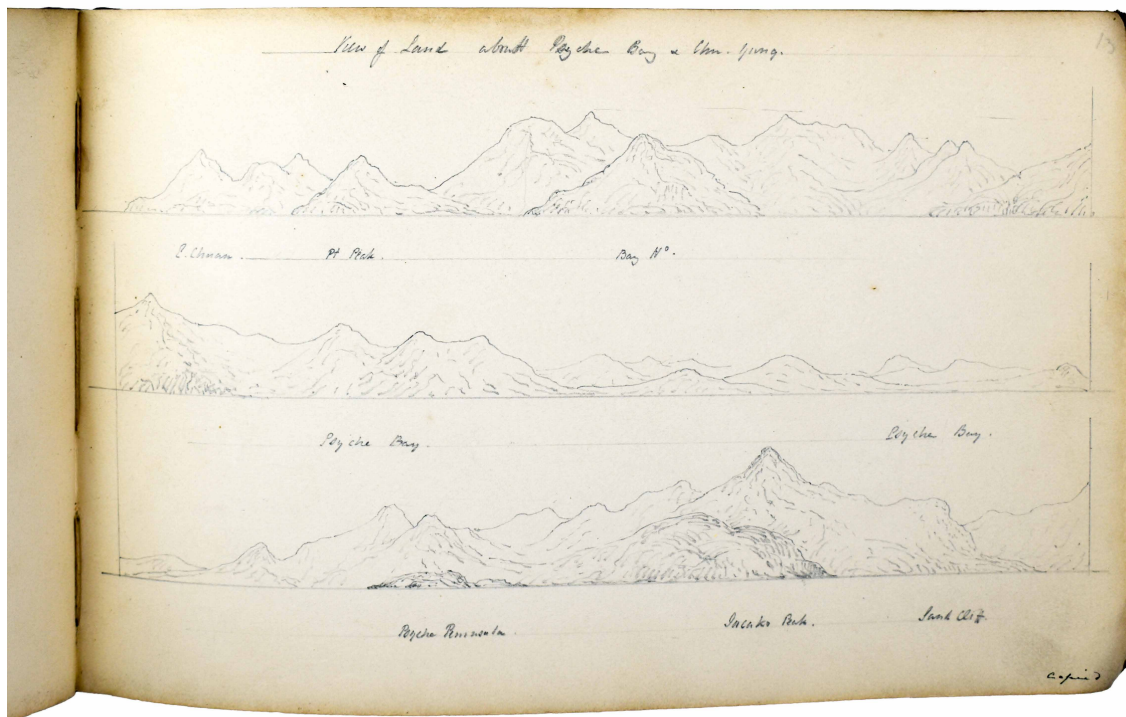 View of Land about Psyche Bay & Chu-yung.
13
C. Chuan. Pt Peak. Bay Hd.
Psyche Bay. Psyche Bay.
Psyche Peninsula. Peak. Sand Cliff.
Copied